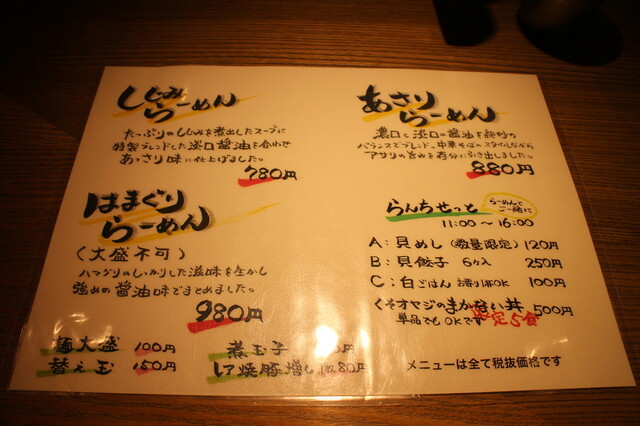 しじみ
らーめん
たっぷりのしじみを煮出したスープに
特製ブレンドした淡口醤油を合わせ
あっさり味に仕上げました。
780円
はまぐり
らーめん
(大盛不可)
ハマグリのしっかりした滋味を生かし
強めの醤油味でまとめました。
980円
麺大盛 100円
替え玉 150円
煮玉子 0円
レア焼豚増し 80円
あさり
らーめん
濃口と淡口の醤油を絶妙な
バランスでブレンド。中華そばのスタイルながら
アサリの旨みを存分に引き出しました。
880円
らんちせっと
らーめんと
ご一緒に
11:00〜16:00
A:貝めし(数量限定) 120円
B:貝餃子 6ヶ入 250円
C:白ごはん お替り1杯OK 100円
くそオヤジのまかない丼 500円
単品でもOKです 限定5食
メニューは全て税抜価格です